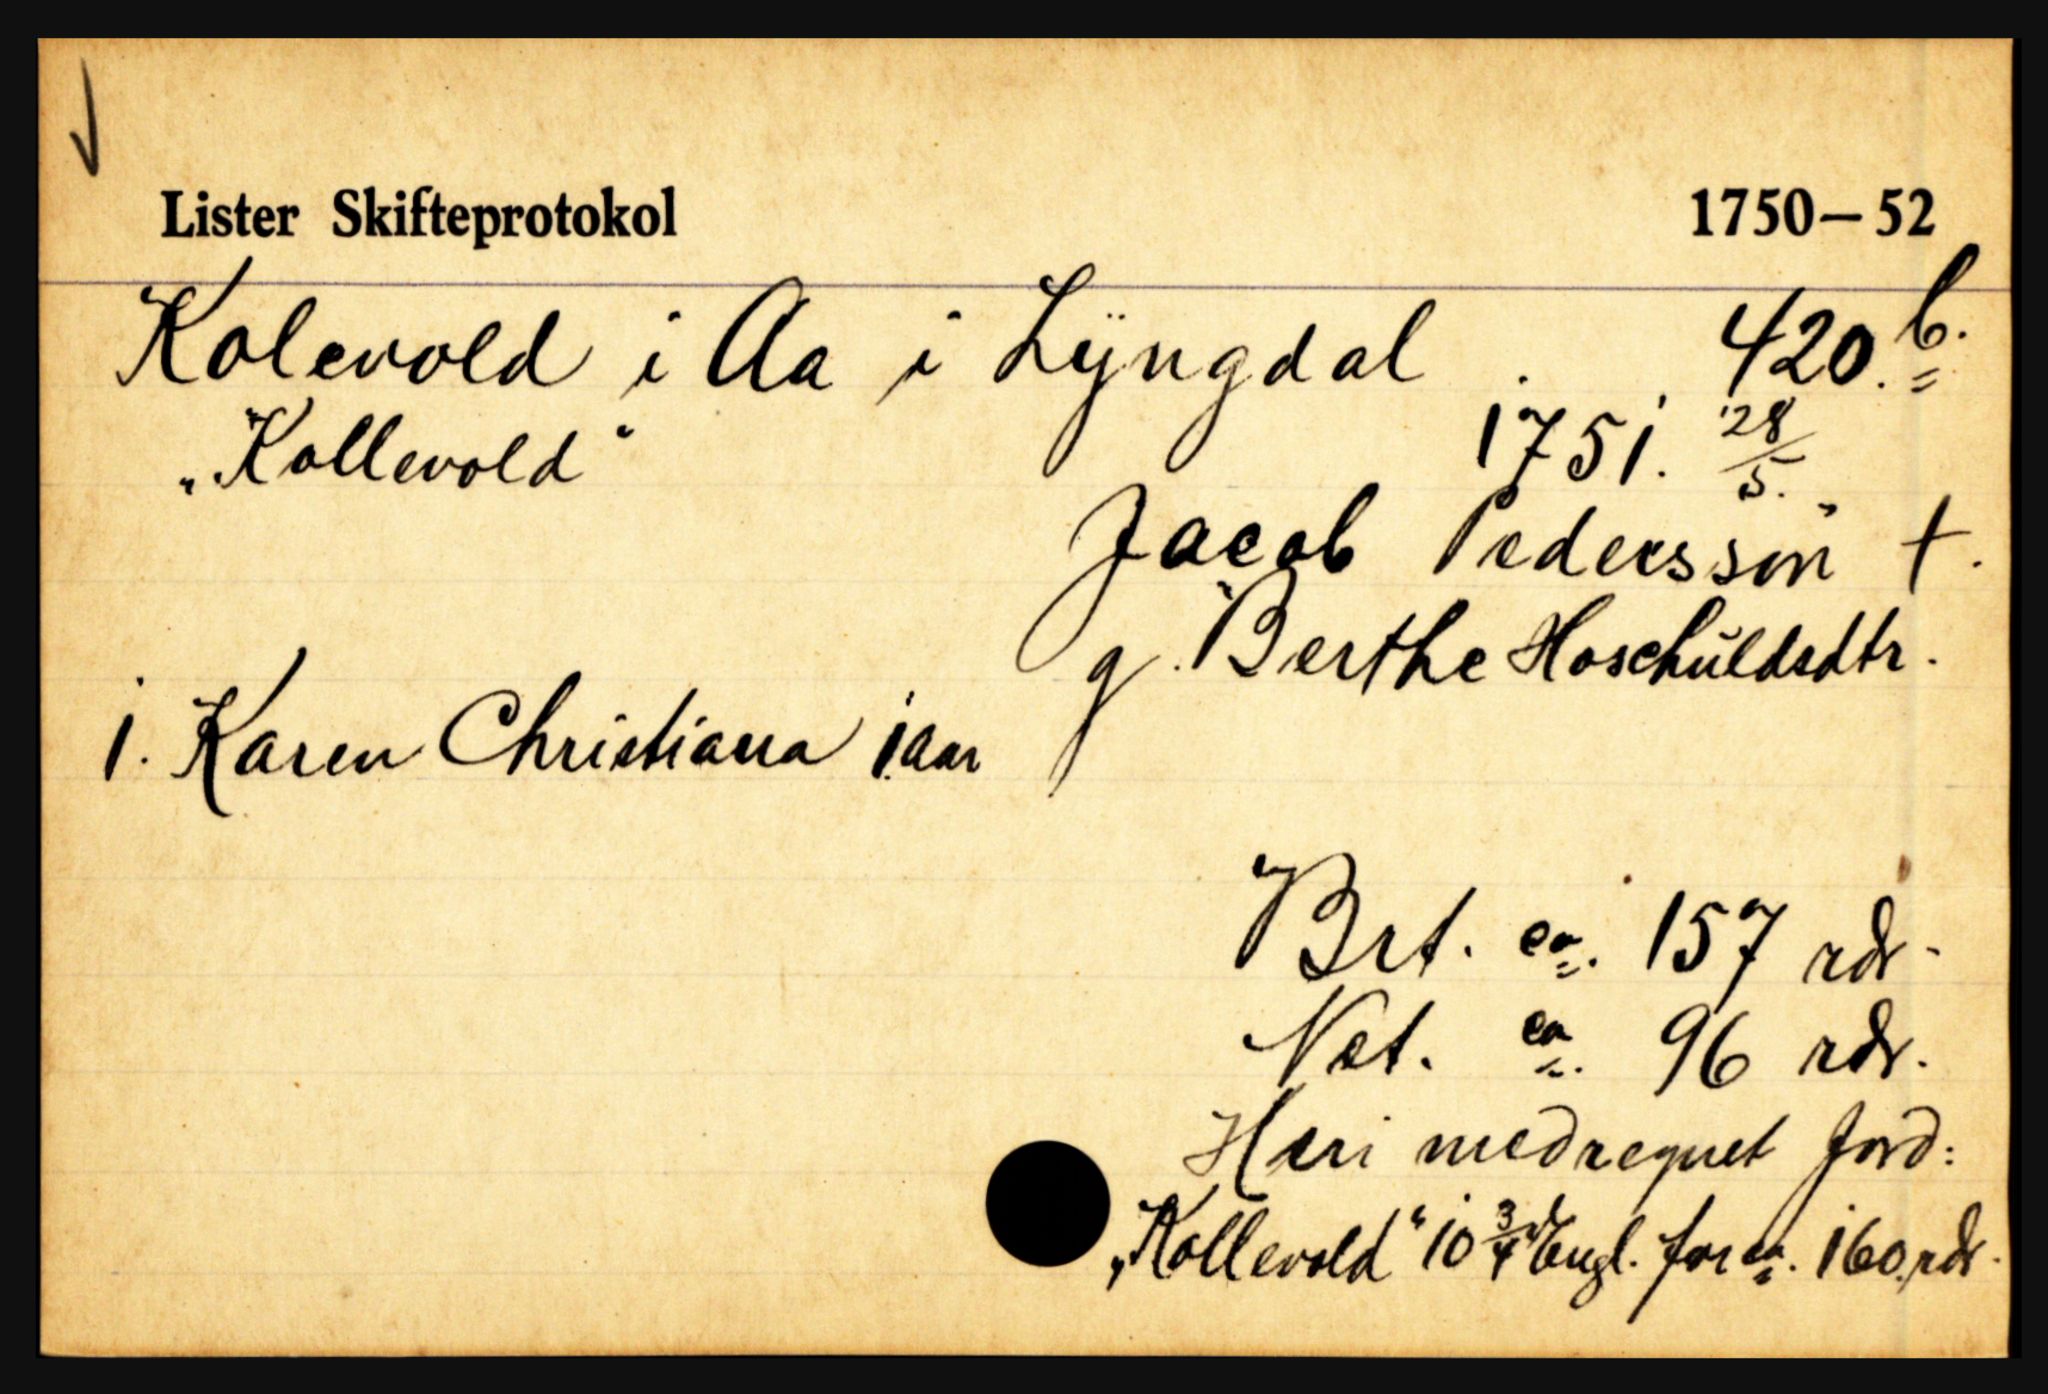 Lister Skifteprotokol 1750–52
Kolevold i Aa i Lÿngdal . 420.b.
„Kollevold“ 1751. 28/5.
Jacob Pedersson †.
g. Berthe Hoschŭldsdtr.
1. Karen Christiana 1 aar
Brt. ca. 157 rdr.
Net. ca. 96 rdr.
Heri medregnet Jord:
„Kollevold“ 10 3/4 Engl. for ca. 160 rdr.